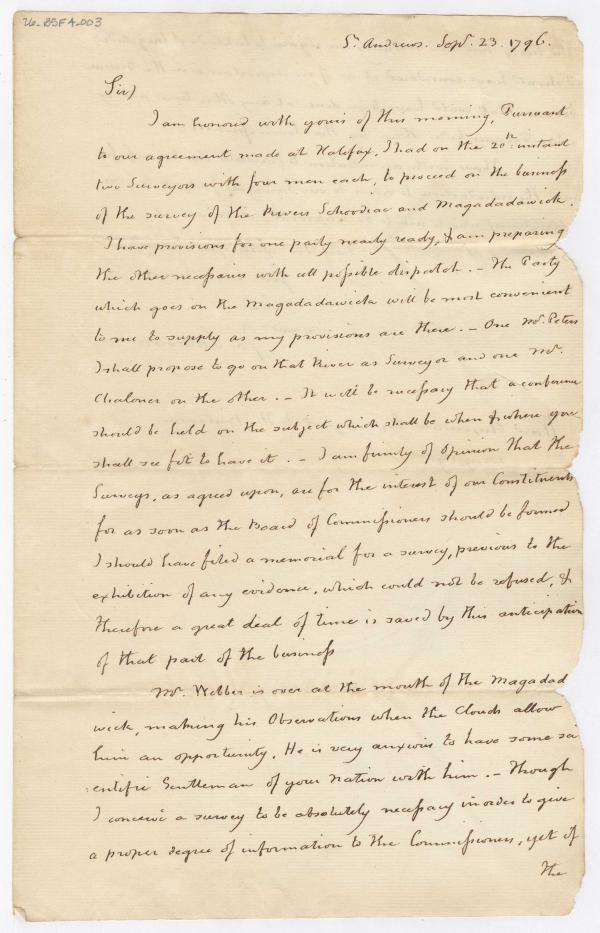 26-BSF4-003
St. Andrews. Sepr. 23. 1796.
Sir)
I am honored with yours of this morning, Pursuant
to our agreement made at Halifax, I had on the 20th. instant
two Surveyors with four men each, to proceed on the business
of the survey of the Rivers Schoodiac and Magadadawick.
I have provisions for one party nearly ready, & am preparing
the other necessaries with all possible dispatch. – The Party
which goes on the Magadadawick will be most convenient
to me to supply as my provisions are there. – One Mr. Peters
I shall propose to go on that River as Surveyor and one Mr.
Chaloner on the other. – It will be necessary that a conference
should be held on the subject which shall be when & where you
shall see fit to have it. – I am firmly of Opinion that the
Surveys, as agreed upon, are for the interest of our Constituents
for as soon as the Board of Commissioners should be formed
I should have filed a memorial for a survey, previous to the
exhibition of any evidence, which could not be refused, &
therefore a great deal of time is saved by this anticipation
of that part of the business
Mr. Webber is over at the mouth of the Magadad
wick, making his Observations when the Clouds allow
him an opportunity. He is very anxious to have some sci
:entific Gentleman of your Nation with him. – Though
I conceive a survey to be absolutely necessary in order to give
a proper degree of information to the Commissioners, yet if
the